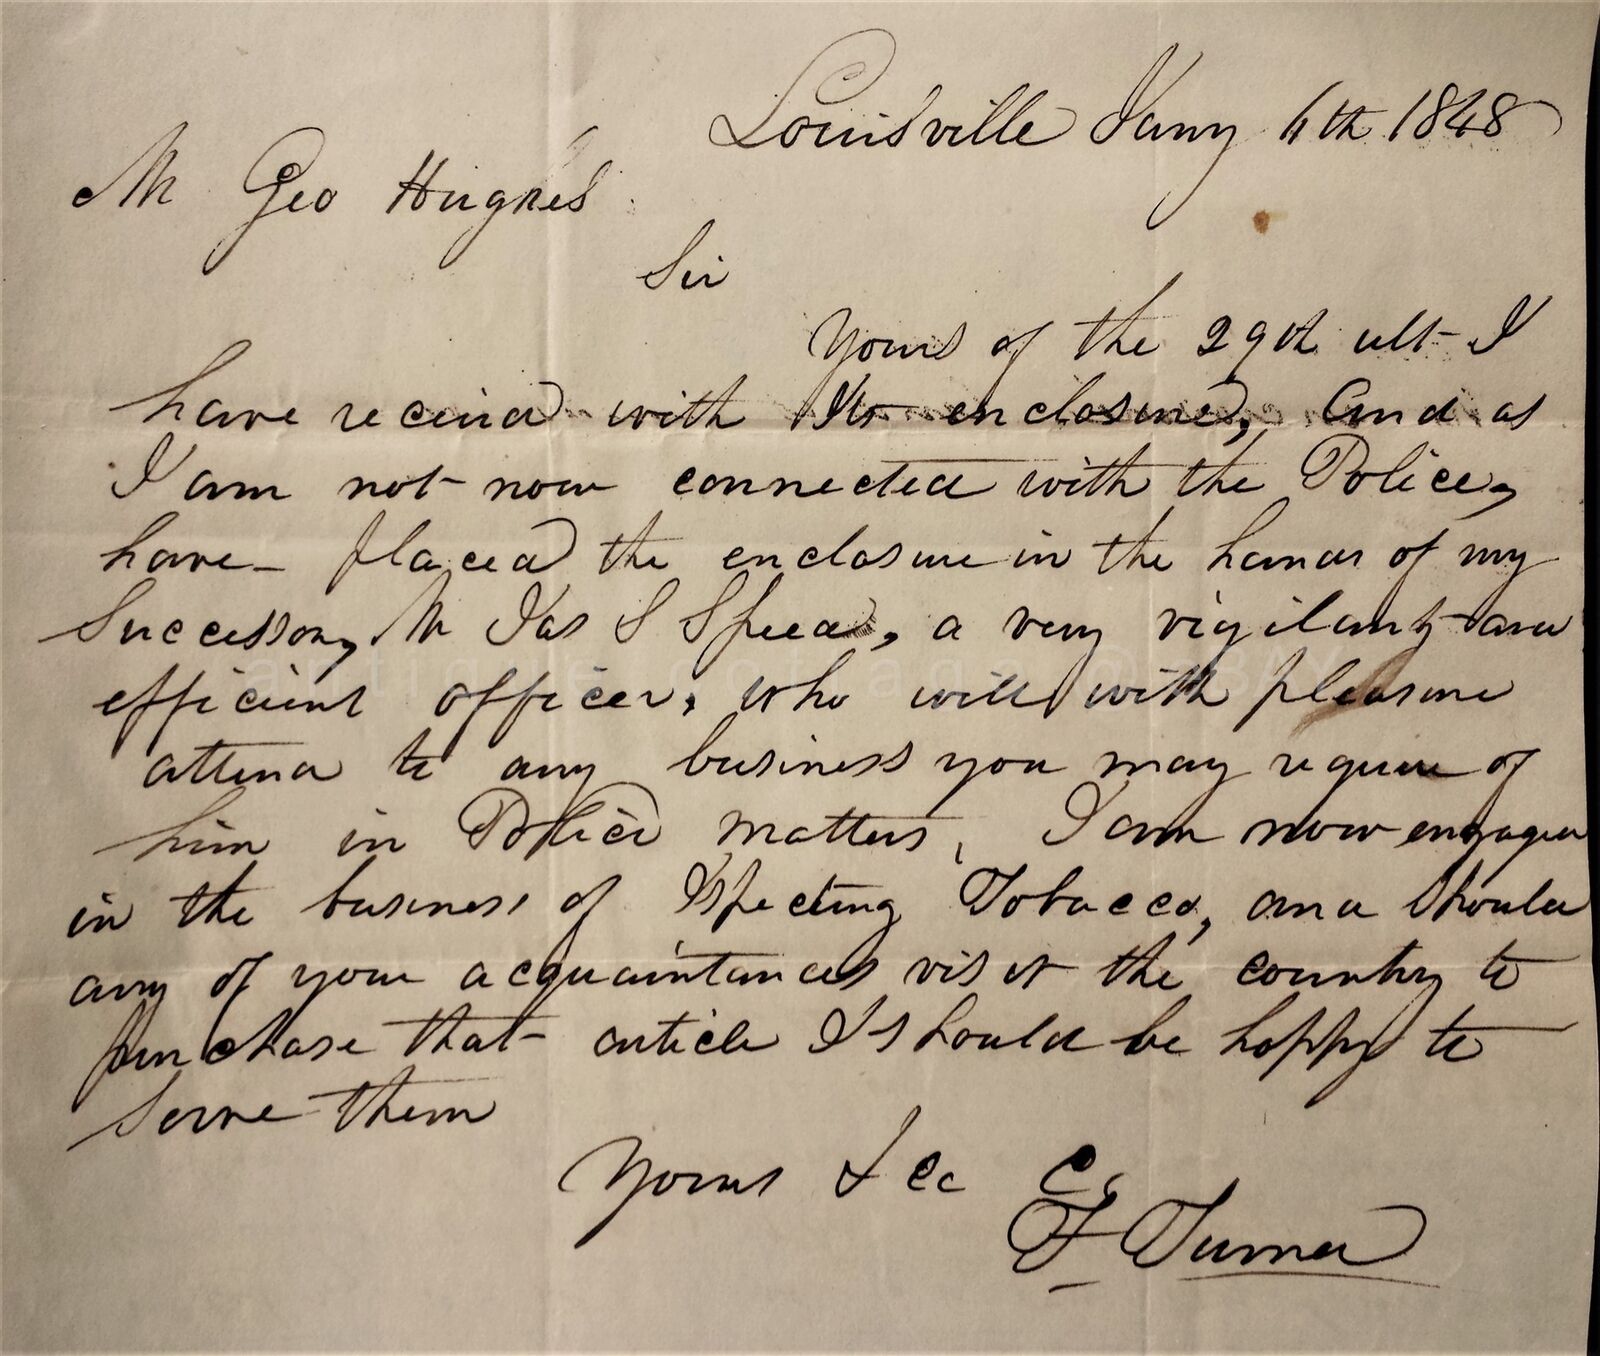 Louisville Jany 4th 1848
Mr Geo Hughes
Sir
Yours of the 29th ult I
have received with Its enclosure, And as
I am not now connected with the Police,
have placed the enclosure in the hands of my
Successor, Mr Jas S Speed, a very vigilant and
efficient officer, who will with pleasure
attend to any business you may require of
him in Police matters, I am now engaged
in the business of Ispecting Tobacco, and should
any of your acquaintances visit the country to
purchase that article I should be happy to
serve them
Yours &c
F Turner